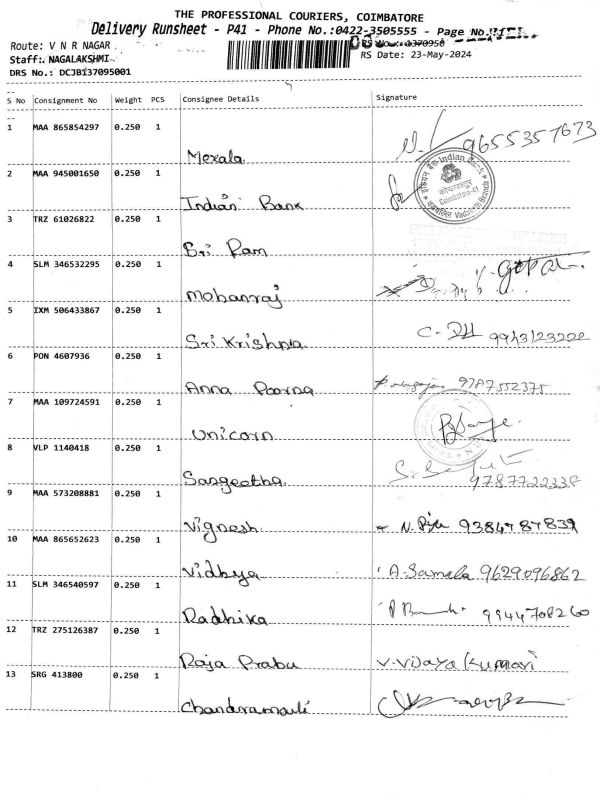 THE PROFESSIONAL COURIERS, COIMBATORE
Delivery Runsheet - P41 - Phone No.:0422-3505555 - Page No.
Route: V N R NAGAR
Staff: NAGALAKSHMI
RS Date: 23-May-2024
DRS No.: DCJBI37095001
S No Consignment No Weight PCS Consignee Details Signature
1 MAA 865854297 0.250 1
Mexala 9655357673
2 MAA 945001650 0.250 1
Indian Bank
3 TRZ 61026822 0.250 1
Sri Ram
4 SLM 346532295 0.250 1
Mohanraj
5 IXM 506433867 0.250 1
Sri Krishna
6 PON 4607936 0.250 1
Anna Poorna 9787552375
7 MAA 109724591 0.250 1
Unicorn
8 VLP 1140418 0.250 1
Sangeetha 9787722338
9 MAA 573208881 0.250 1
Vignesh
10 MAA 865652623 0.250 1
Vidhya A. Samala 9629096862
11 SLM 346540597 0.250 1
Radhika 9944708260
12 TRZ 275126387 0.250 1
Raja Prabu V. Vijaya Kumari
13 SRG 413800 0.250 1
Chandramauli